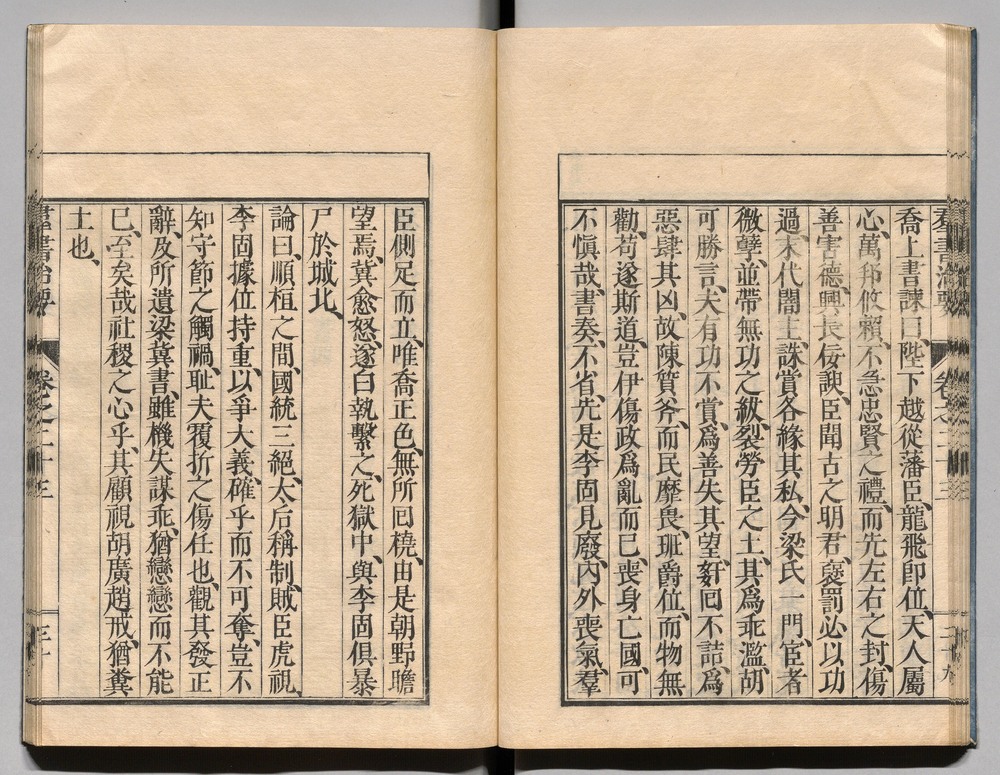 羣書治要 卷之二十三 二十九
喬上書諫曰、陛下越從藩臣、龍飛卽位、天人屬
心、萬邦攸賴、不急忠賢之禮、而先左右之封、傷
善害德、興長佞諛、臣聞古之明君、褒罰必以功
過、末代闇主、誅賞各緣其私、今梁氏一門、宦者
微孽、並帶無功之紱、裂勞臣之土、其爲乖濫、胡
可勝言、夫有功不賞、爲善失其望、姧囘不詰、爲
惡肆其凶、故陳資斧、而民靡畏、班爵位、而物無
勸、苟遂斯道、豈伊傷政爲亂而已、喪身亡國、可
不愼哉、書奏、不省、先是李固見廢、內外喪氣、羣
臣側足而立、唯喬正色、無所囘橈、由是朝野瞻
望焉、冀愈怒、遂白執繫之、死獄中、與李固俱暴
尸於城北、
論曰、順桓之間、國統三絕、太后稱制、賊臣虎視、
李固據位持重、以爭大義、確乎而不可奪、豈不
知守節之觸禍、耻夫覆折之傷任也、觀其發正
辭、及所遺梁冀書、雖機失謀乖、猶戀戀而不能
已、至矣哉社稷之心乎、其顧視胡廣趙戒、猶糞
土也、
羣書治要 卷之二十三 三十